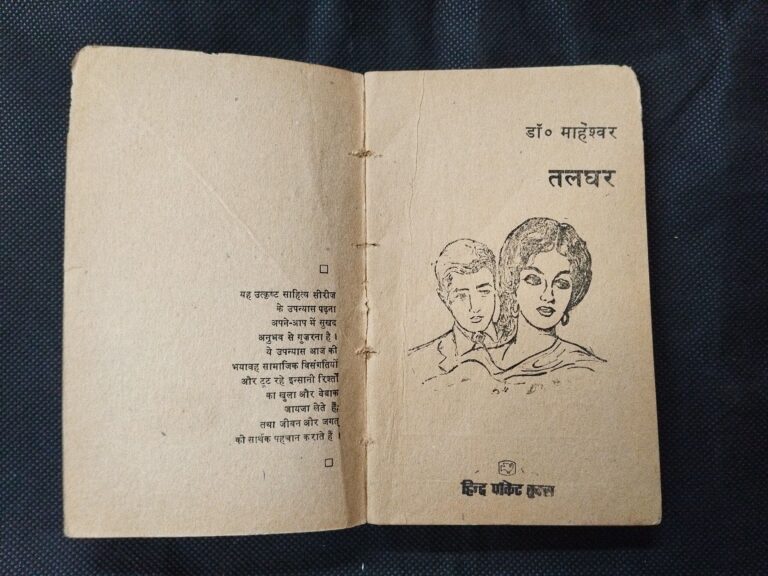 यह उत्कृष्ट साहित्य सीरीज
के उपन्यास पढ़ना
अपने-आप में सुखद
अनुभव से गुज़रना है ।
ये उपन्यास आज की
भयावह सामाजिक विसंगतियों
और टूट रहे इन्सानी रिश्तों
का खुला और बेबाक
जायजा लेते हैं;
तथा जीवन और जगत्
की सार्थक पहचान कराते हैं ।
डॉ० माहेश्वर
तलघर
हिन्द पॉकेट बुक्स